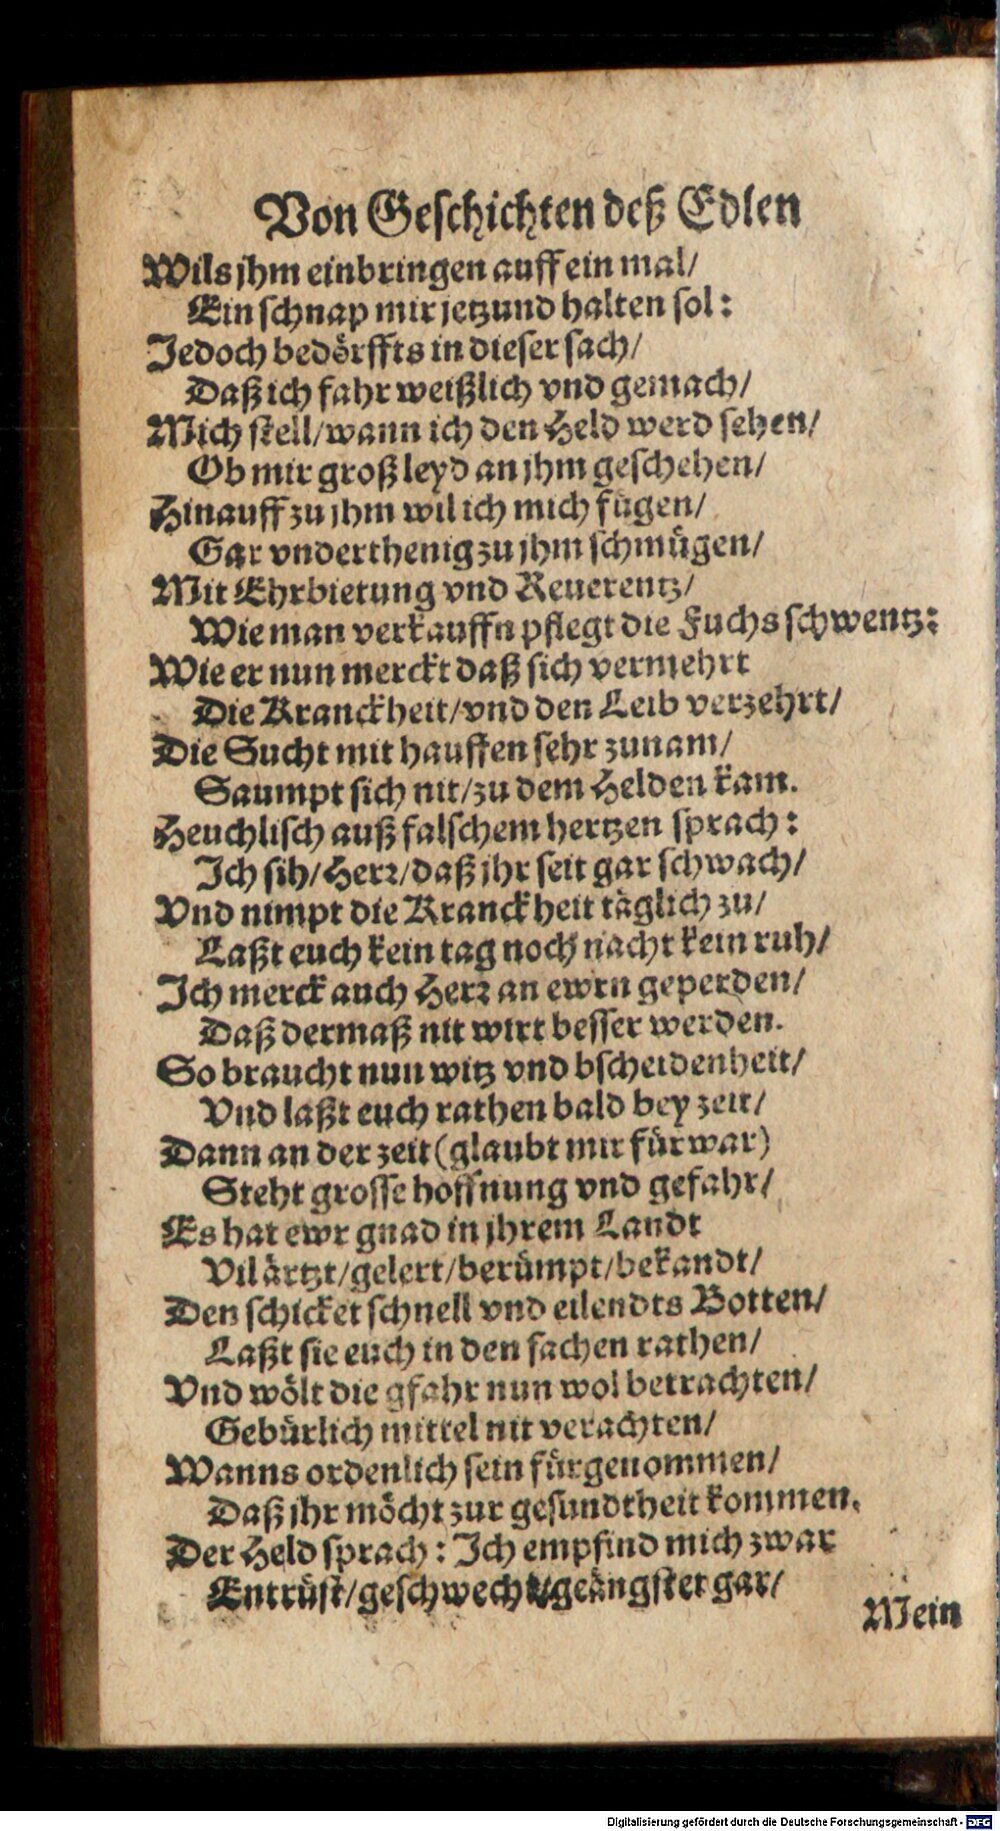 Von Geschichten deß Edlen
Wils jhm einbringen auff ein mal/
Ein schnap mir jetzund halten sol:
Jedoch bedörffts in dieser sach/
Daß ich fahr weißlich vnd gemach/
Mich stell/wann ich den Held werd sehen/
Ob mir groß leyd an jhm geschehen/
Hinauff zu jhm wil ich mich fügen/
Gar vnderthenig zu jhm schmügen/
Mit Ehrbietung vnd Reuerentz/
Wie man verkauffn pflegt die Fuchsschwentz:
Wie er nun merckt daß sich vermehrt
Die Kranckheit/vnd den Leib verzehrt/
Die Sucht mit hauffen sehr zunam/
Saumpt sich nit/zu dem Helden kam.
Heuchlisch auß falschem hertzen sprach:
Ich sih/Herr/daß jhr seit gar schwach/
Vnd nimpt die Kranckheit täglich zu/
Laßt euch kein tag noch nacht kein ruh/
Ich merck auch Herr an ewrn geperden/
Daß dermaß nit wirt besser werden.
So braucht nun witz vnd bscheidenheit/
Vnd laßt euch rathen bald bey zeit/
Dann an der zeit (glaubt mir fürwar)
Steht grosse hoffnung vnd gefahr/
Es hat ewr gnad in jhrem Landt
Vil ärtzt/gelert/berümpt/bekandt/
Den schicket schnell vnd eilendts Botten/
Laßt sie euch in den sachen rathen/
Vnd wölt die gfahr nun wol betrachten/
Gebürlich mittel nit verachten/
Wanns ordenlich sein fürgenommen/
Daß jhr möcht zur gesundtheit kommen.
Der Held sprach: Ich empfind mich zwar
Entrüst/geschwecht/geängstet gar/
Mein
Digitalisierung gefördert durch die Deutsche Forschungsgemeinschaft - DFG